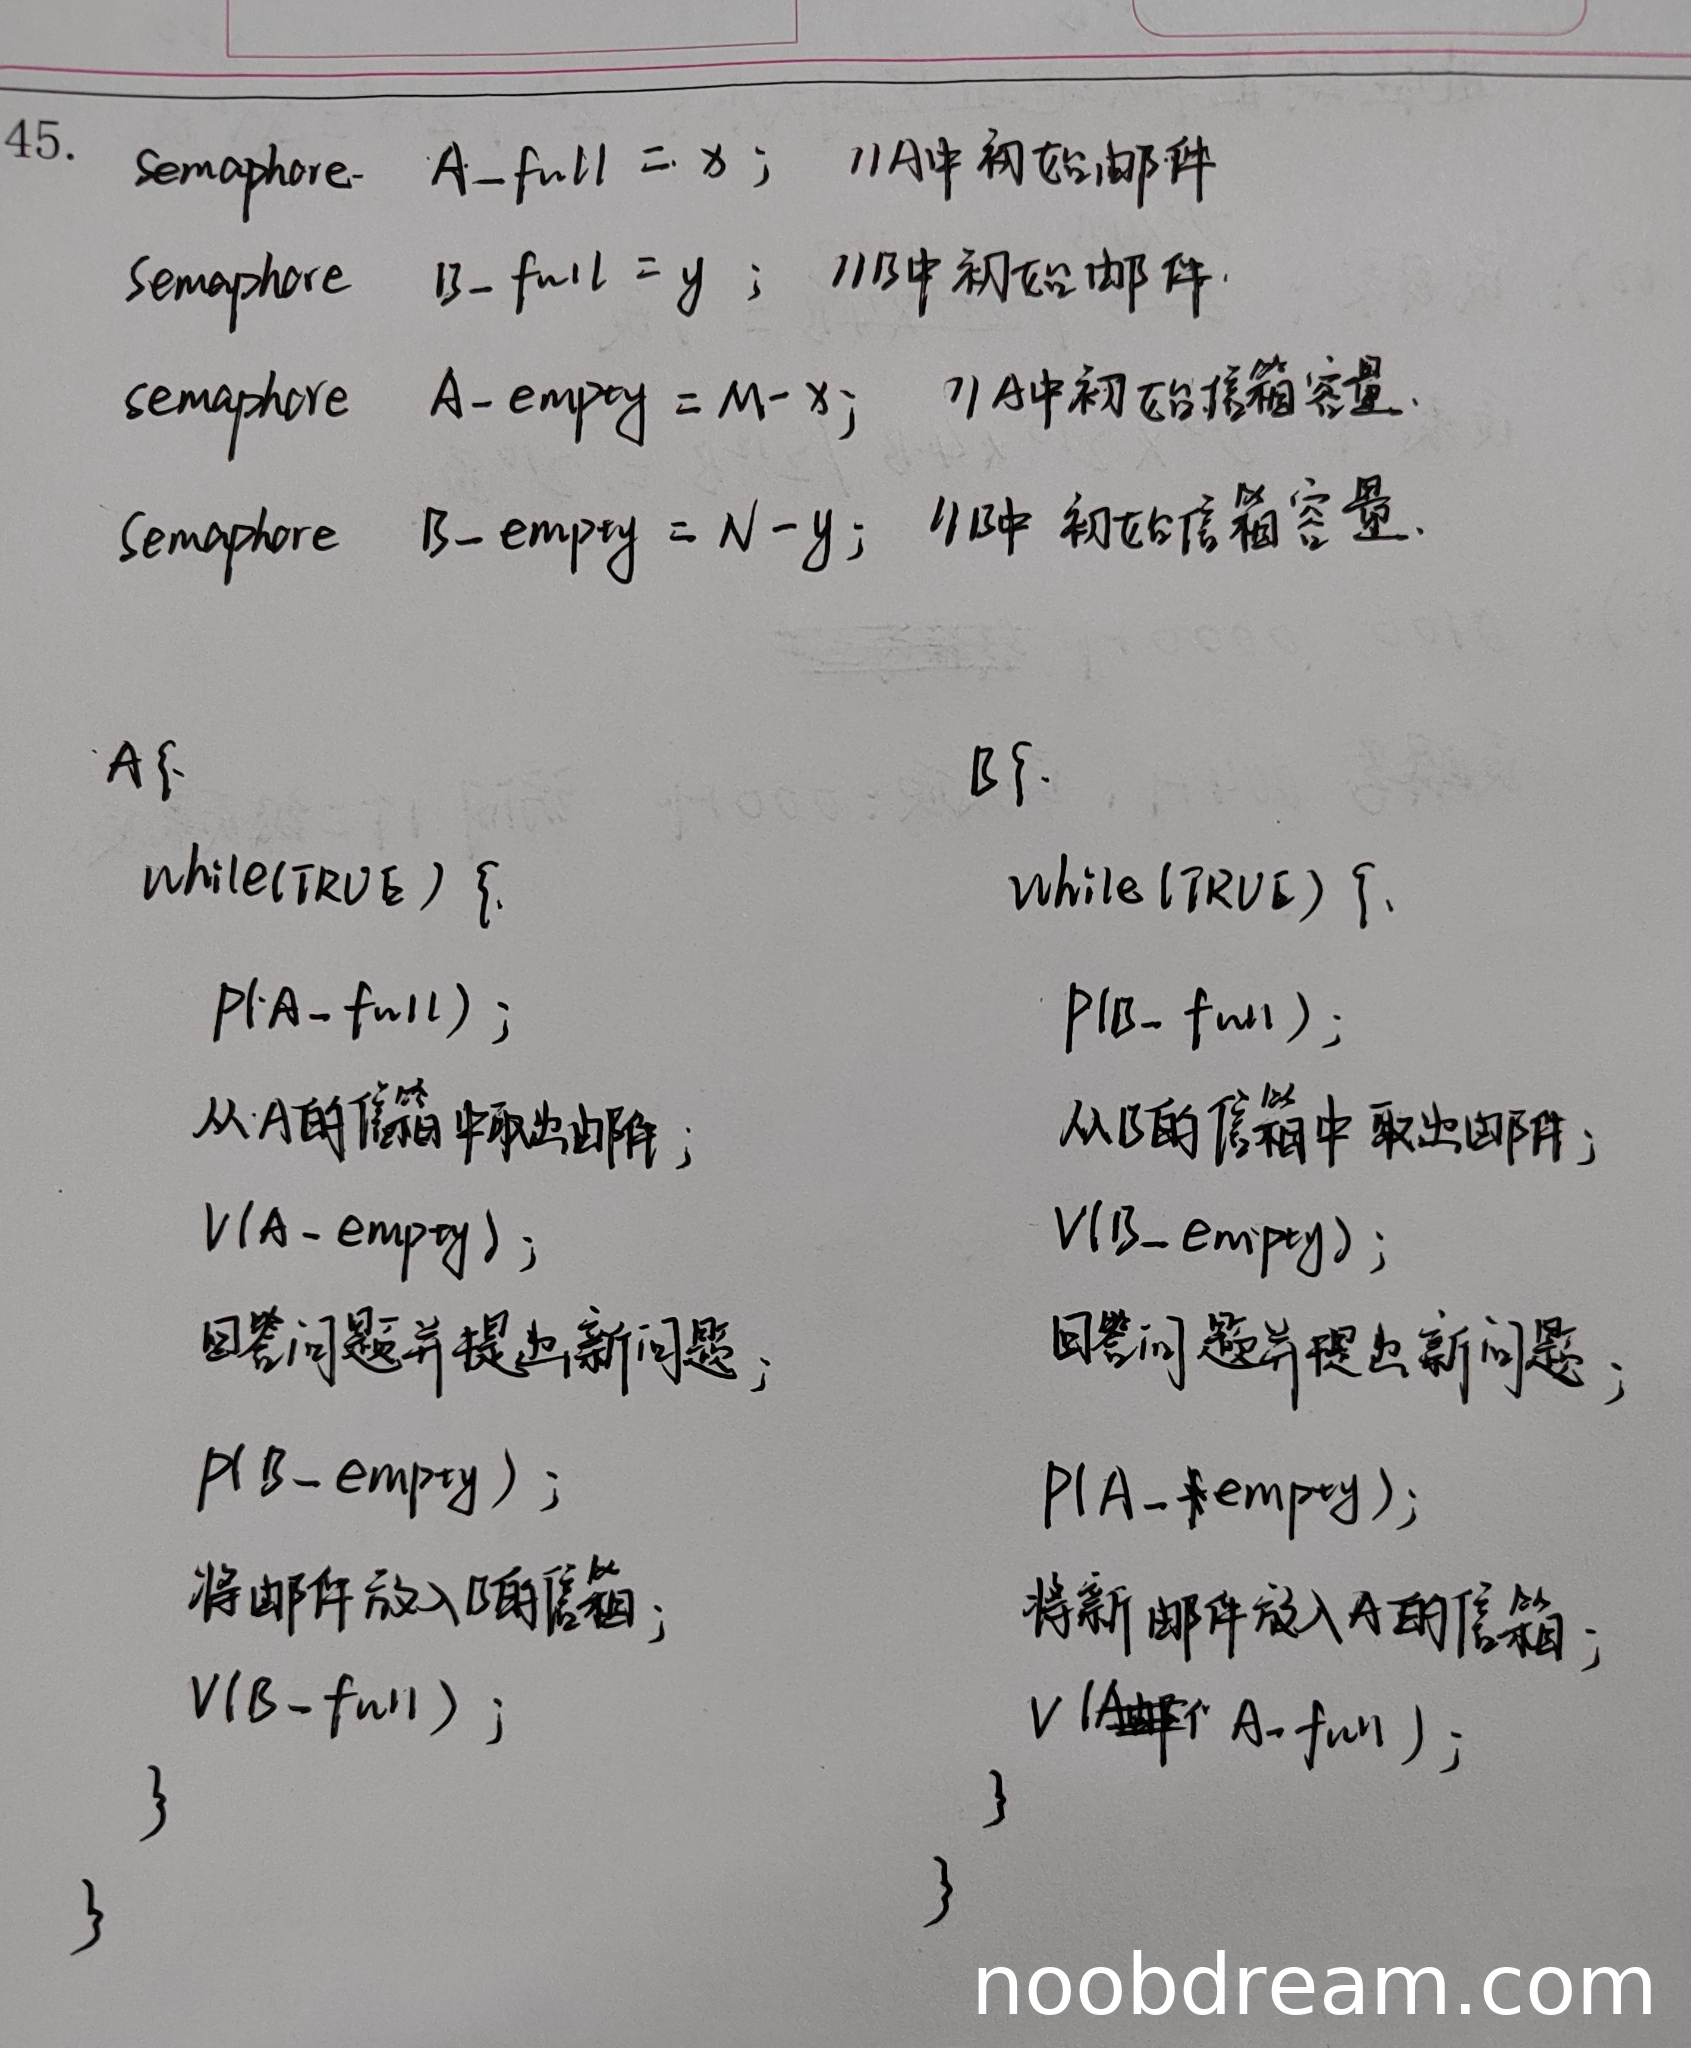 45.
semaphore A_full = x; //A中初始邮件
Semaphore B_full = y; //B中初始邮件.
semaphore A_empty = M-x; //A中初始信箱容量.
Semaphore B_empty = N-y; //B中初始信箱容量.
A{
while(TRUE) {
P(A_full);
从A的信箱中取出邮件;
V(A_empty);
回答问题并提出新问题;
P(B_empty);
将邮件放入B的信箱;
V(B_full);
}
}
B{
while(TRUE) {
P(B_full);
从B的信箱中取出邮件;
V(B_empty);
回答问题并提出新问题;
P(A_empty);
将新邮件放入A的信箱;
V(A_full);
}
}
noobdream.com